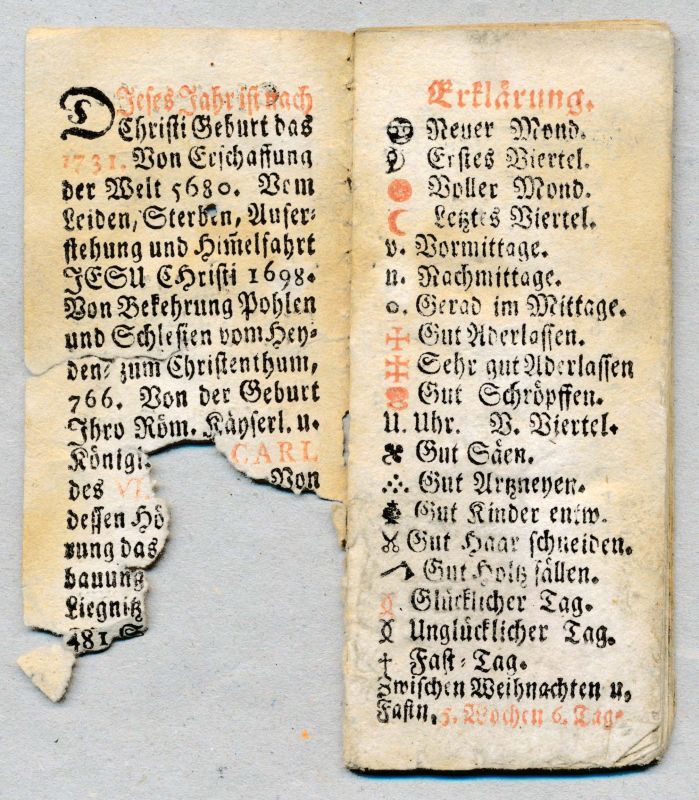 DJeses Jahr ist nach
Christi Geburt das
1731. Von Erschaffung
der Welt 5680. Vom
Leiden, Sterben, Aufer-
stehung und Him̃elfahrt
JESU CHristi 1698.
Von Bekehrung Pohlen
und Schlesien vom Hey-
den- zum Christenthum,
766. Von der Geburt
Ihro Röm. Käyserl. u.
Königl. CARL
des VI. Von
dessen Hö
rung das
bauung
Liegnitz
481
Erklärung.
Neuer Mond.
Erstes Viertel.
Voller Mond.
Letztes Viertel.
v. Vormittage.
n. Nachmittage.
o. Gerad im Mittage.
Gut Aderlassen.
Sehr gut Aderlassen
Gut Schröpffen.
U. Uhr. V. Viertel.
Gut Säen.
Gut Artzneyen.
Gut Kinder entw.
Gut Haar schneiden.
Gut Holtz fällen.
Glücklicher Tag.
Unglücklicher Tag.
† Fast-Tag.
Zwischen Weihnachten u,
Fastn. 5. Wochen 6. Tage